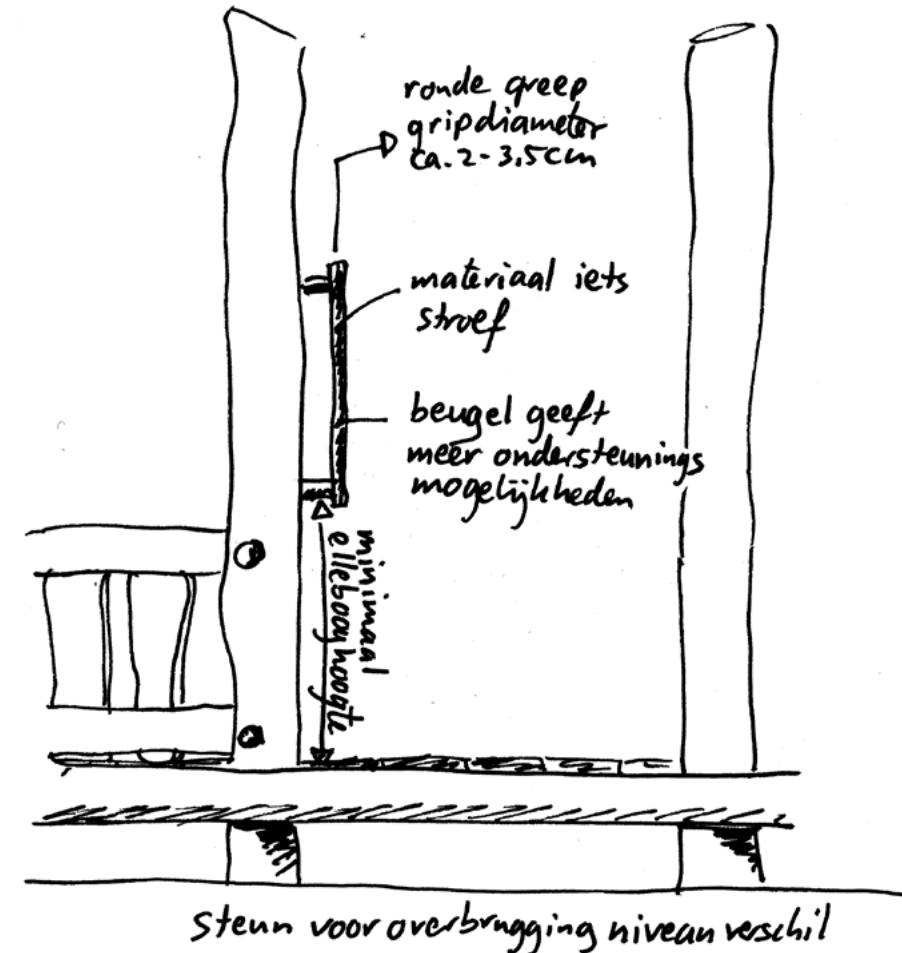 ronde greep
gripdiameter
ca. 2-3.5cm
materiaal iets
stroef
beugel geeft
meer ondersteunings
mogelijkheden
minimaal
elleboog hoogte
steun voor overbrugging niveau verschil